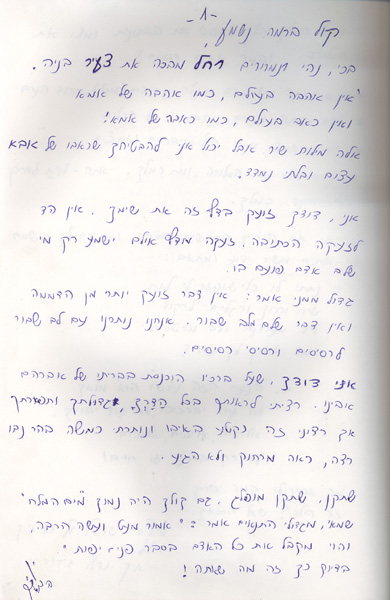 - 8 -
קול ברמה נשמע,
בכי, נהי תמרורים רחל מבכה את צעיר בניה.
"אין אהבה בעולם, כמו אהבה של אמא
ואין כאב בעולם, כמו כאבה של אמא!
אלה מילות שיר. אבל יכול אני להבטיחך שכאבו של אבא
עצום ובלתי נמדד.
אני, דודך זועק בדף זה את שימך. אין הד
לזעקה הכתיבה. זעקה מודף אולם ישמע רק מי
שלב אדם פועם בו.
גדול ממני אמר: אין דבר זועק יותר מן הדממה
ואין דבר שלם מלב שבור. אנחנו נותרנו עם לב שבור
לרסיסים ורסיסי רסיסים.
אני דודך, שעל ברכיו הוכנסת בבריתו של אברהם
אבינו. רציתי לראותך בכל הדרך, גדולתך ותפארתך
אך רציתי זה נקטע באיבו ונותרתי כמשה בהר נבו
רצה, ראה מרחוק ולא הגיע.
שתקן, שתקן מופלג. גם קולך היה נמוך "מים המלח"
שמאי, מגדולי התנאים אמר: "אמור מעט ועשה הרבה,
והוי מקבל את כל האדם בסבר פנים יפות"
בדיוק כך זה מה שהיה!